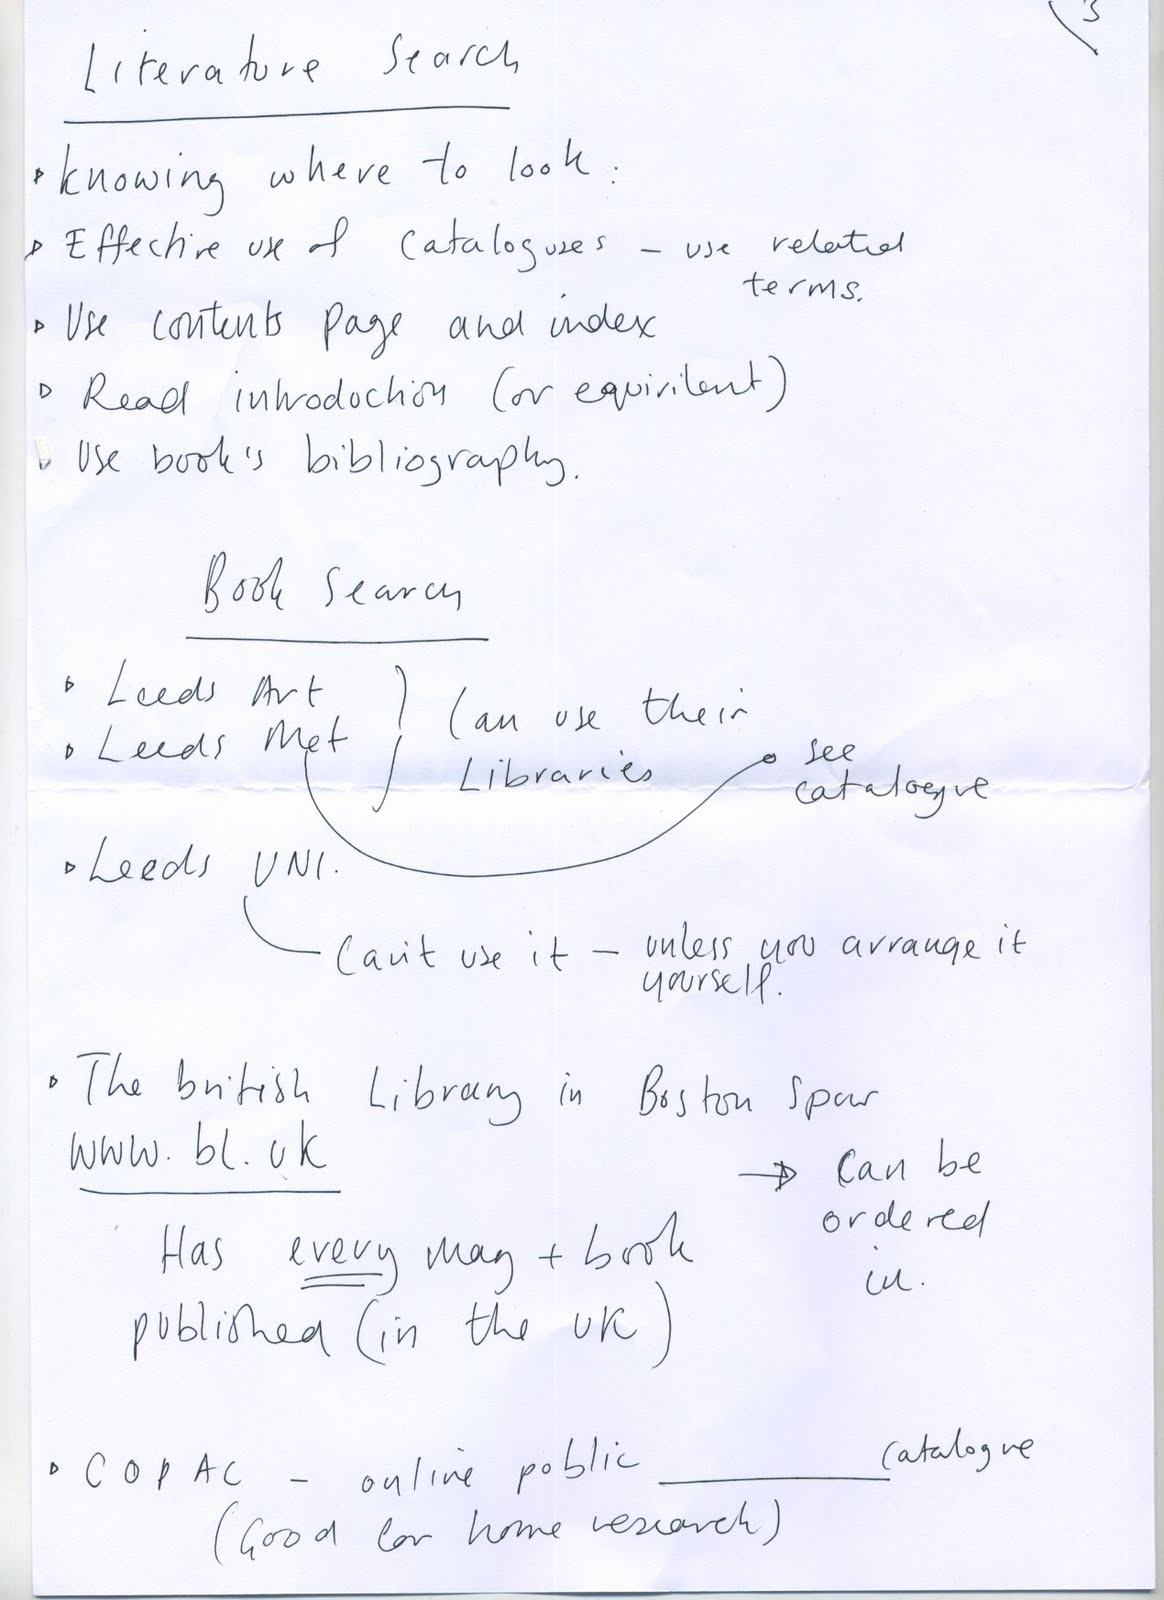 3
Literature Search
knowing where to look:
Effective use of catalogues – use related
terms.
Use contents page and index
Read introduction (or equivilent)
Use book's bibliography.
Book Search
Leeds Art
Leeds Met
Can use their
Libraries
see
catalogue
Leeds UNI.
Can't use it – unless you arrange it
yourself.
The british Library in Boston Spar
www.bl.uk
→ Can be
ordered
in.
Has every mag + book
published (in the UK)
COPAC – online public ________ catalogue
(Good for home research)